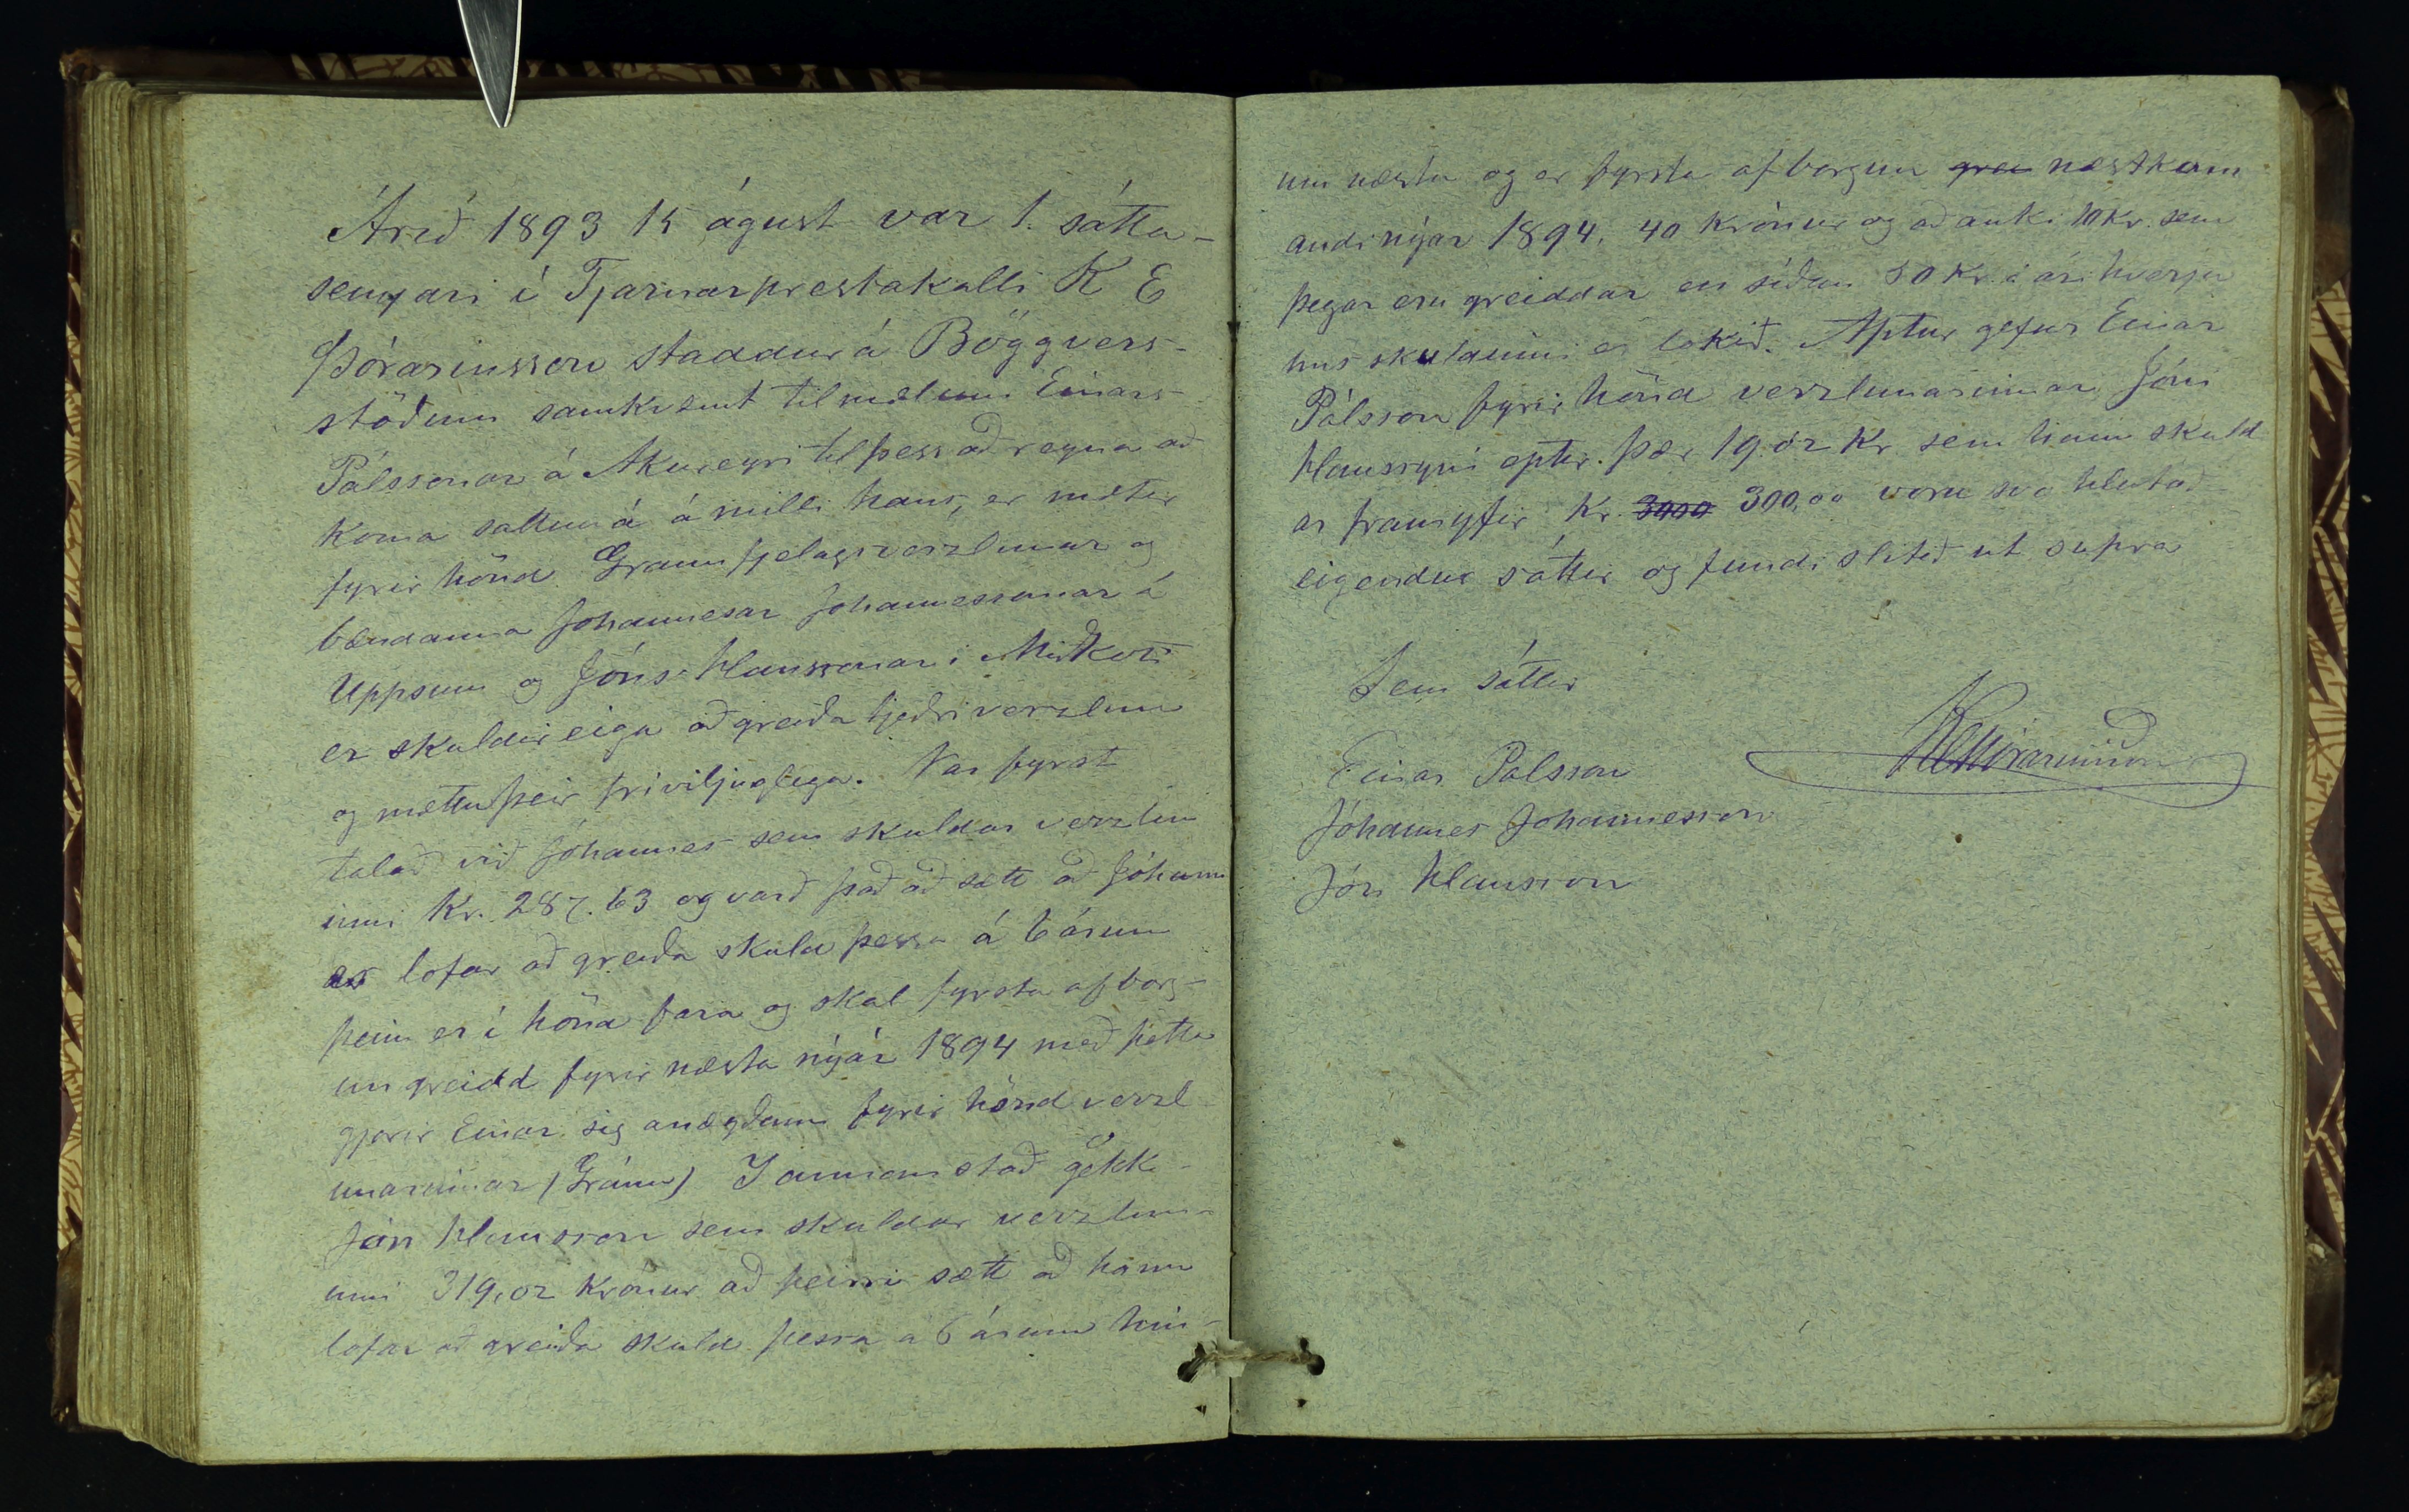 Árið 1893 15 águst var 1. sátta-
semjari í Tjarnarprestakalli K E
Þórarinsson staddur á Böggvers-
stöðum samkvæmt tilmælum Einars
Pálssonar á Akureyri til þess að reyna að
koma sáttum á á milli hans, er mætir
fyrir hönd Gránufjelagsverzlunar og
bændanna Jóhannesar Jóhannessonar á
Uppsum og Jóns Hanssonar í Miðkoti
er skuldir eiga að greiða tjeðri verzlun
og mættu þeir friviljuglega. Var fyrst
talað við Jóhannes sem skuldar verzlun
inni Kr. 287.63 og varð það að sætt að Jóhann
es lofar að greiða skuld þessa á 6 árum
þeim er í hönd fara og skal fyrsta afborg-
un greidd fyrir næsta nýár 1894 með þetta
gjörir Einar sig anægðann fyrir hönd verzl
unarinnar (Gránu) I annan stað gekk
Jón Hansson sem skuldar verzlun-
inni 319,02 krónur að þeirri sætt að hann
lofar að greiða skuld þessa a 6 árum hin-
um næstu og er fyrsta afborgun grei næstkom
andi nýár 1894, 40 krónur og að auki 10 kr. sem
þegar eru greiddar en síðan 50 kr. á ári hverju
uns skuldinni er lokið. Aptur gefur Einar
Pálsson fyrir hönd verzlunarinnar Jóni
Hanssyni eptir þær 19.02 Kr sem hann skuld
ar framyfir Kr. 3000 300,00 voru svo hlutað
eigendur sáttir og fundi slitið ut supra
Sem sáttir
KEÞórarinsson
Einar Pálsson
Jóhannes Jóhannesson
Jón Hansson